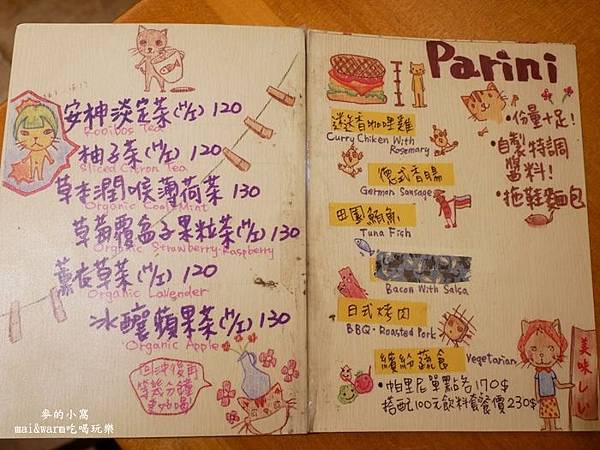 安神淡定茶(熱) 120
Rooibos Tea
柚子茶(熱) 120
Sliced Citron Tea
草本潤喉薄荷茶 130
Organic Cool Mint
草莓覆盆子果粒茶(熱) 130
Organic Strawberry-Raspberry
薰衣草茶(熱) 120
Organic Lavender
冰釀蘋果茶(熱) 130
Organic Apple
回沖慢再
等幾分鐘
更好喝
麥的小窩
mai&warm吃喝玩樂
Parini
迷迭香咖哩雞
Curry Chiken With
Rosemary
德式香腸
German Sausage
田園鮪魚
Tuna Fish
Bacon With Salsa
日式烤肉
BBQ·Roasted Pork
繽紛蔬食
Vegetarian
·帕里尼單點各170$
搭配100元飲料套餐價230$
·份量十足!
·自製特調
醬料!
·拖鞋麵包
美味しい